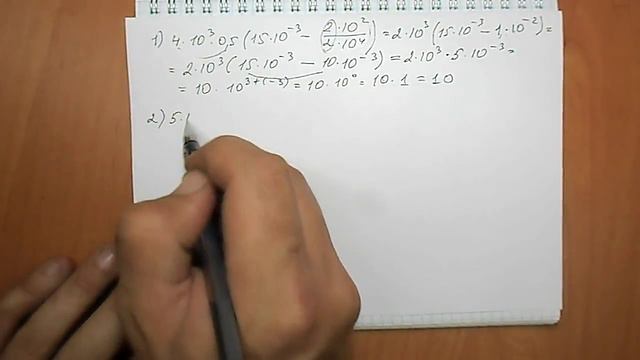 1) 4·10³·0,5(15·10⁻³ − (2·10²/2·10⁴)) = 2·10³(15·10⁻³ − 1·10⁻²) =
= 2·10³(15·10⁻³ − 10·10⁻³) = 2·10³·5·10⁻³ =
= 10·10³⁺⁽⁻³⁾ = 10·10⁰ = 10·1 = 10
2) 5·